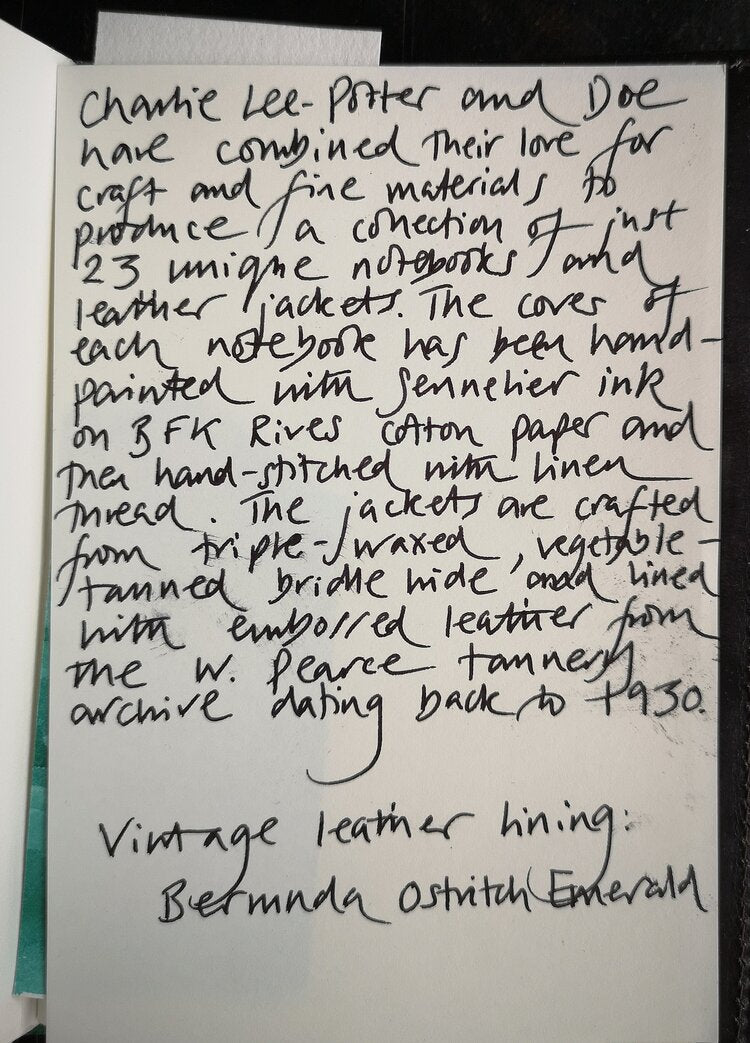 Charlie Lee-Potter and Doe
have combined their love for
craft and fine materials to
produce a collection of just
23 unique notebooks and
leather jackets. The cover of
each notebook has been hand-
painted with Sennelier ink
on BFK Rives cotton paper and
then hand-stitched with linen
thread. The jackets are crafted
from triple-waxed, vegetable-
tanned bridle hide and lined
with embossed leather from
the W. Pearce tannery
archive dating back to 1930.
Vintage leather lining:
Bermuda Ostritch Emerald